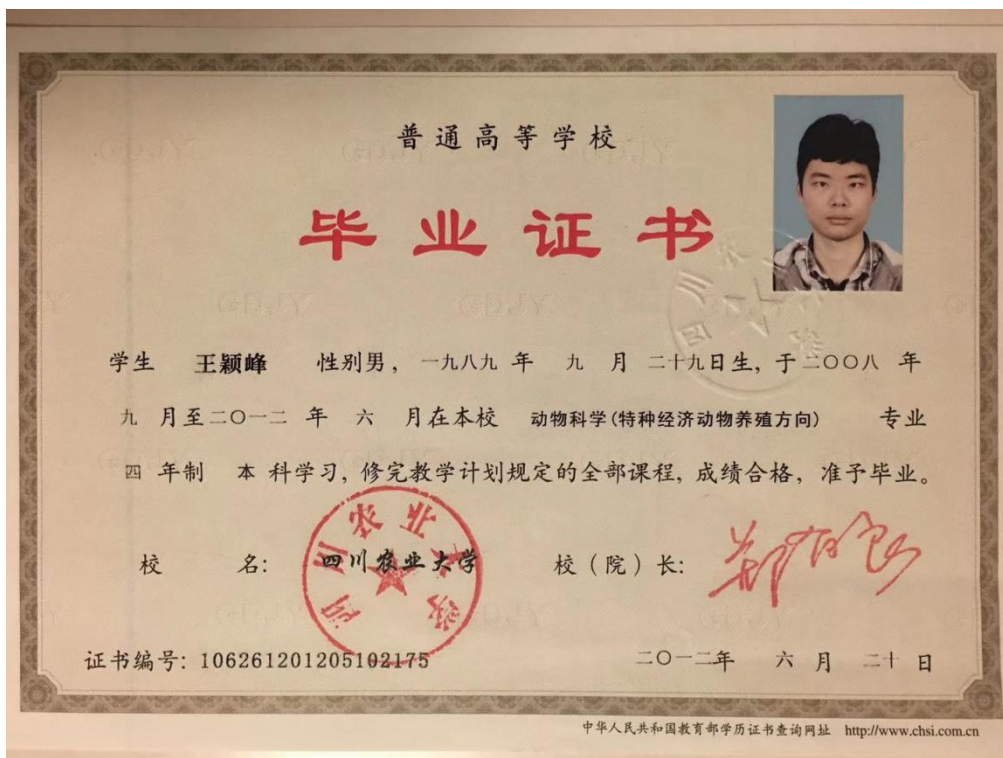 普通高等学校
毕业证书
学生 王颖峰 性别男，一九八九 年 九 月 二十九日生，于二〇〇八 年
九 月至二〇一二 年 六 月在本校 动物科学(特种经济动物养殖方向) 专业
四 年制 本 科学习，修完教学计划规定的全部课程，成绩合格，准予毕业。
校 名：四川农业大学 校（院）长：郑有良
证书编号：106261201205102175 二〇一二年 六 月 二十 日
中华人民共和国教育部学历证书查询网址 http://www.chsi.com.cn